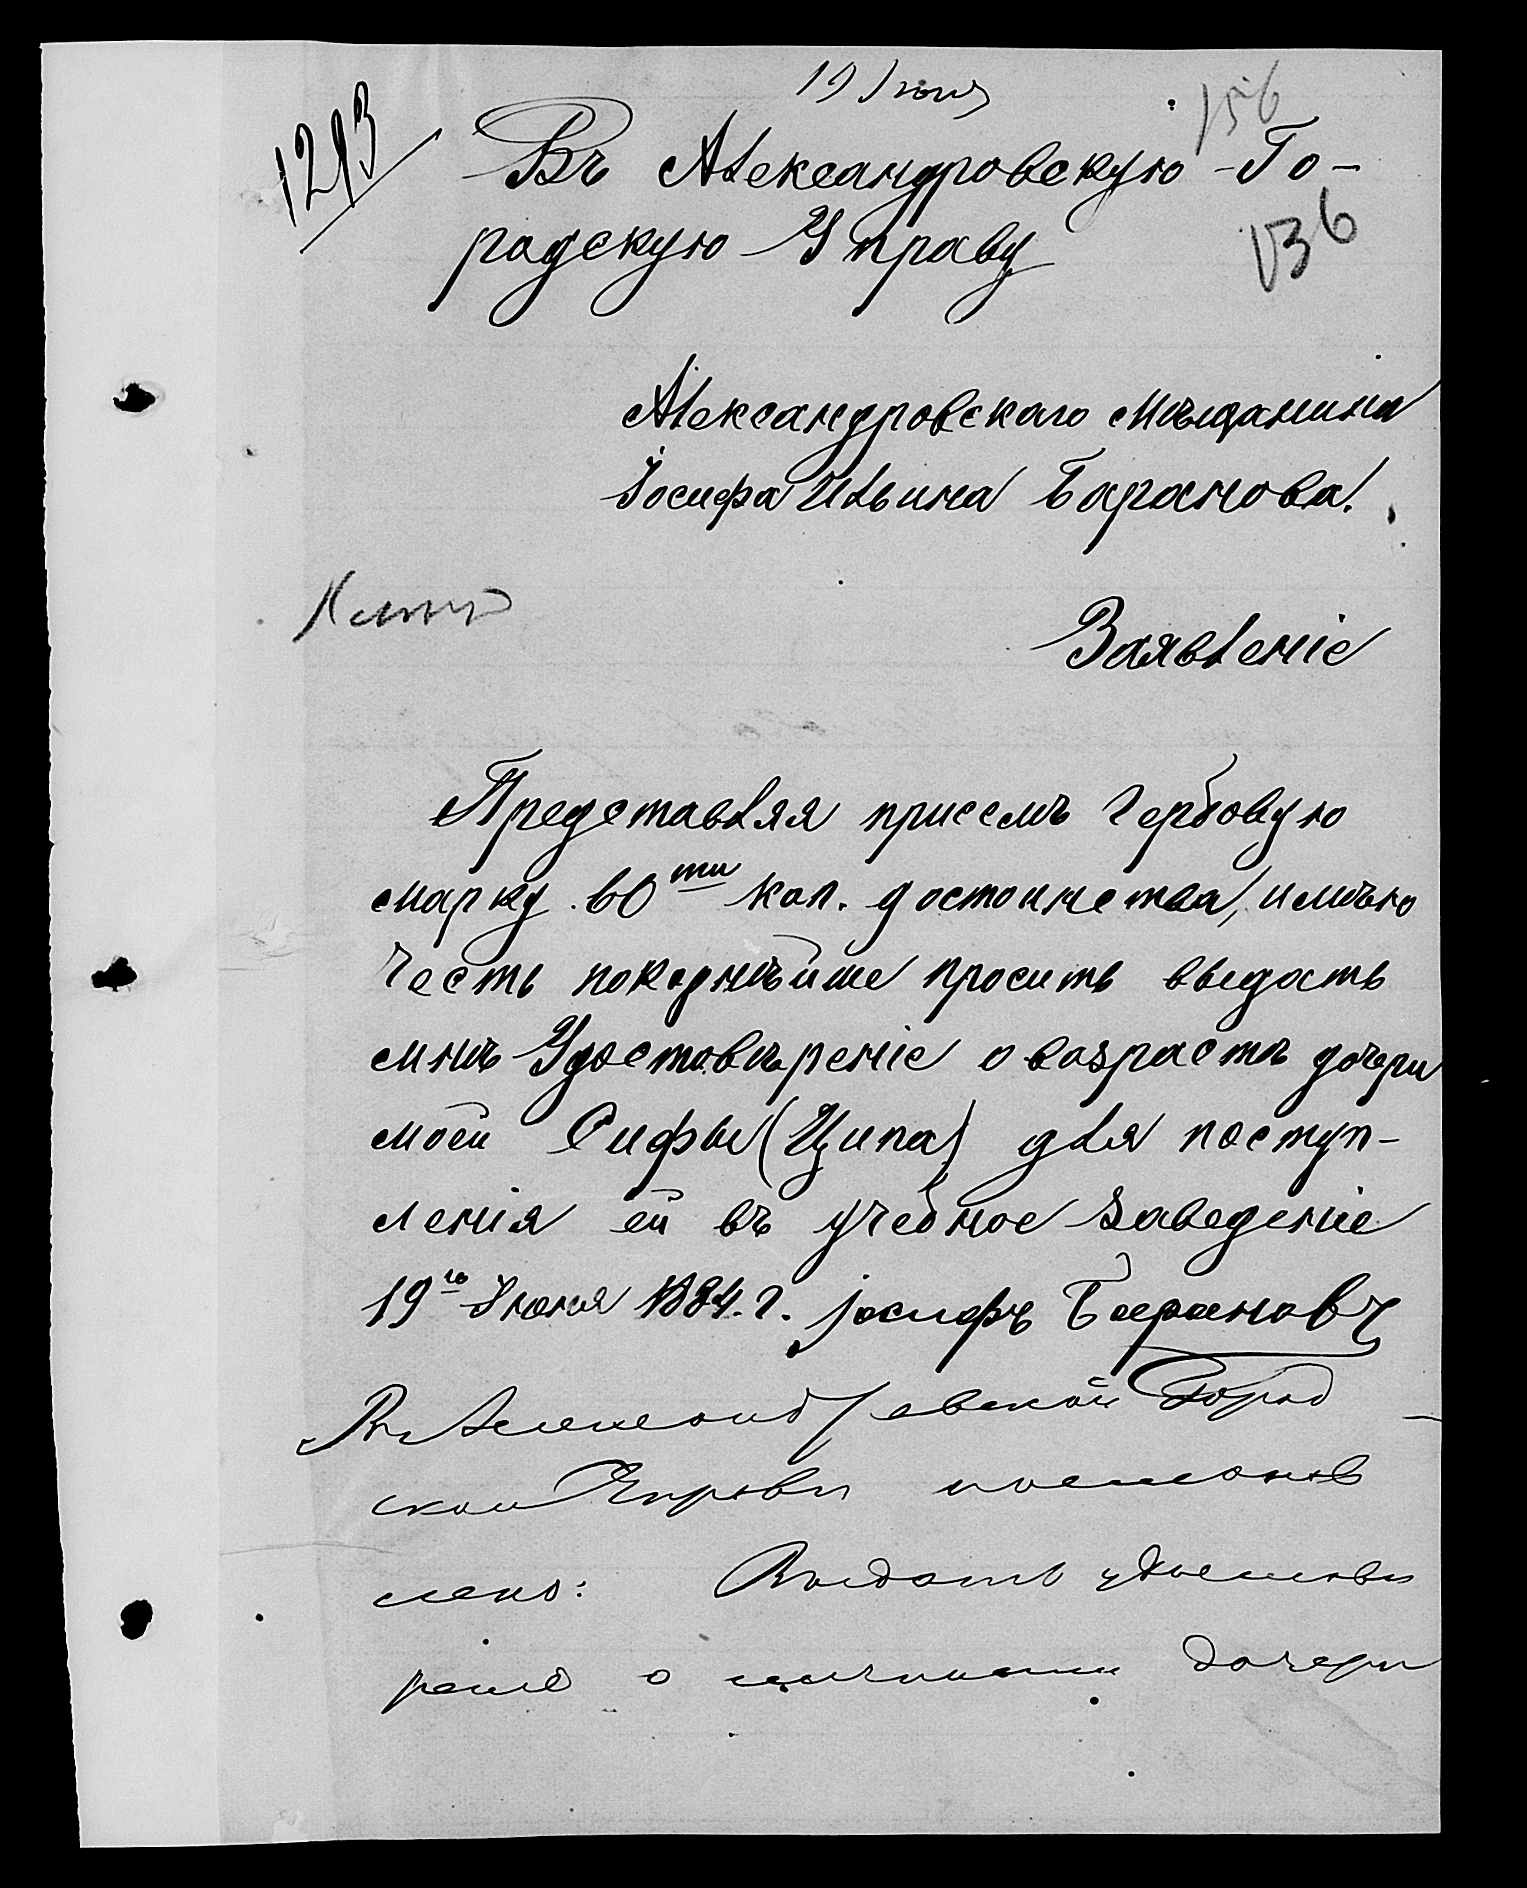 19 Іюня
156
1293
Въ Александровскую Го-
родскую Управу
136
Александровскаго мѣщанина
Іосифа Ильина Баранова.
Заявленіе
Представляя присемъ гербовую
марку 60ти коп. достоинства, имѣю
честь покорнѣйше просить выдать
мнѣ Удостовѣреніе о возрастѣ дочери
моей Сифы (Ципа) для поступ-
ленія ей въ учебное заведеніе
19го Іюня 1884. г. Іосифъ Барановъ
Въ Александровской Город
ской Управѣ постанов
лено: Выдать удостовѣ
реніе о дочери